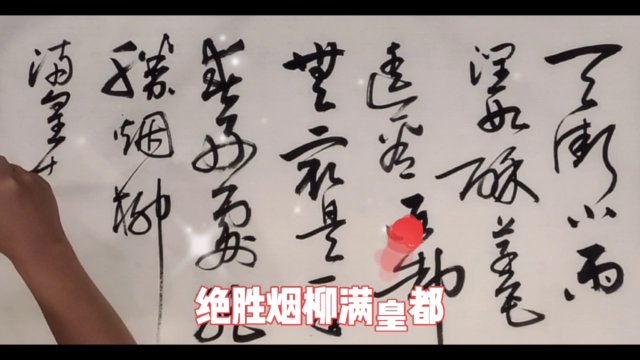 天街小雨
润如酥草色
遥看近却
無最是一年
春好處绝
勝烟柳
满皇
绝胜烟柳满皇都